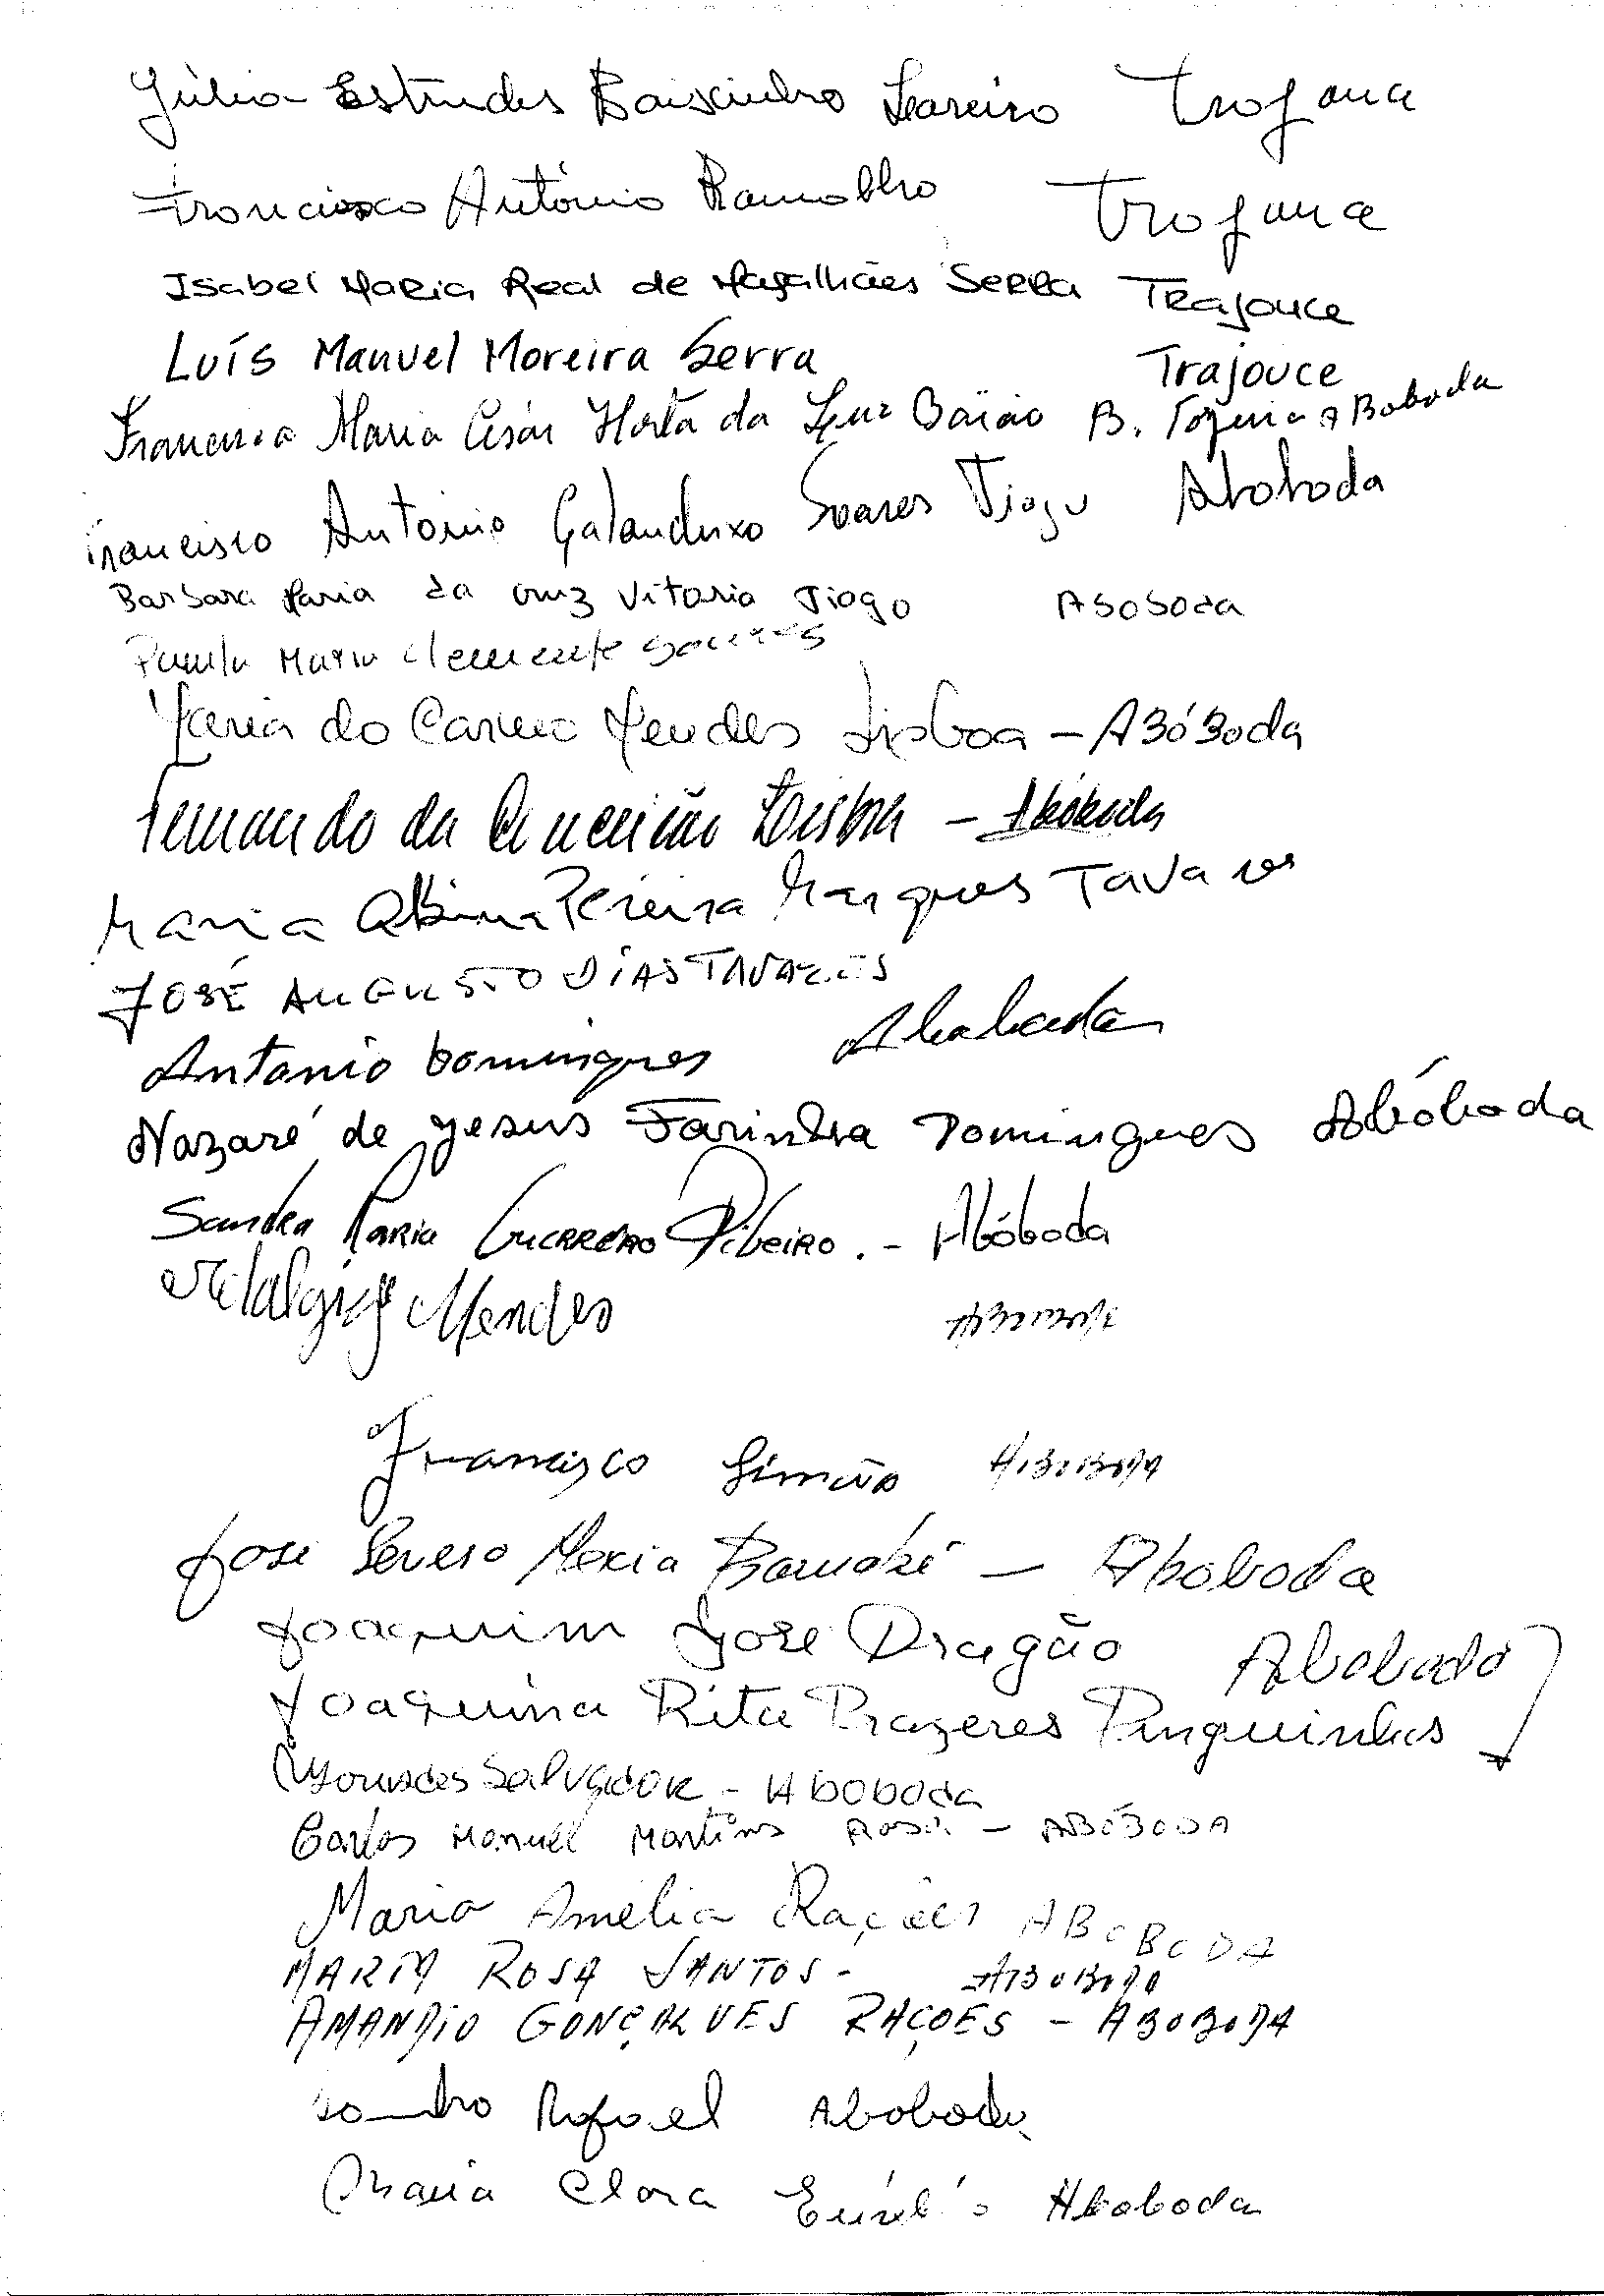 Júlia Estrudes Baixinho Trajouce
Francisco António Ramalho Trajouce
Isabel Maria Real de Magalhães Serra Trajouce
Luís Manuel Moreira Serra Trajouce
Francisca Maria César Horta da Luz Baião B. Aboboda
Francisco Antonio Galanduxo Soares Tiago Aboboda
Barbara Maria da Cruz Vitoria Tiogo Aboboda
Paula Maria Clemente Soares
Maria do Carmo Mendes Lisboa - Abóboda
Fernando da Conceição Lisboa - Abóboda
Maria Albina Pereira Marques Tavares
JOSÉ AUGUSTO DIAS TAVARES
Antonio Domingues Aboboda
Nazaré de Jesus Farinha Domingues Abóboda
Sandra Maria Guerreiro Ribeiro. - Abóboda
Mendes ABOBODA
Francisco Simão ABOBODA
José Severo Mexia - Aboboda
Joaquim José Dragão Aboboda
Joaquina Rita Prazeres Pinguinhas
Lourdes Salvador - Aboboda
Carlos Manuel Martins Rosa - ABÓBODA
Maria Amélia Rações ABOBODA
MARIA ROSA SANTOS - ABOBODA
AMANDIO GONÇALVES RAÇOES - ABOBODA
Sandro Rafael Aboboda
Maria Clara Aboboda